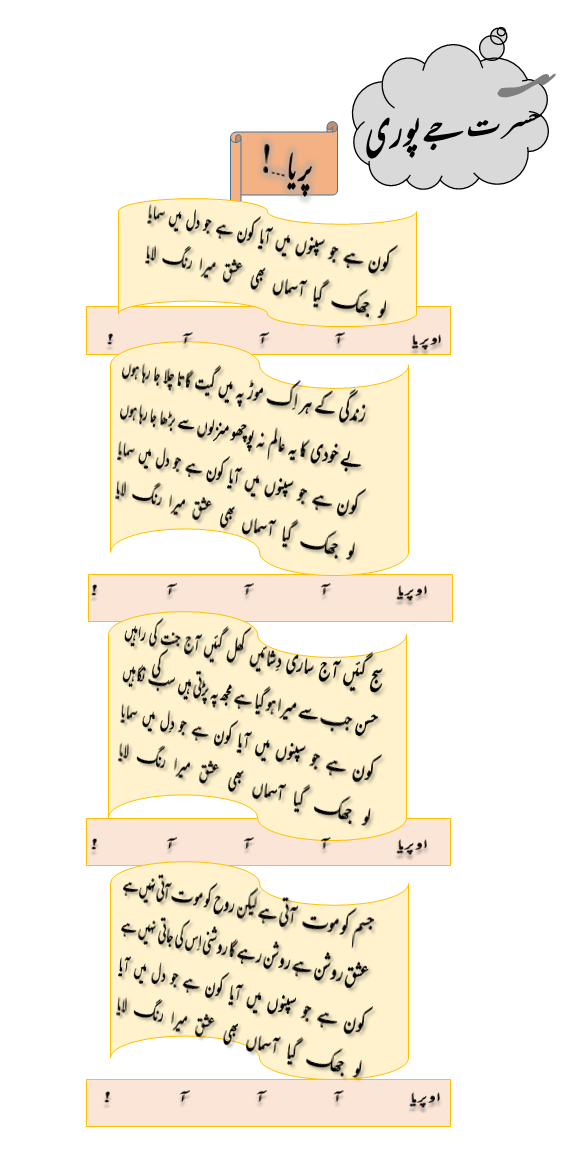 حسرت جے پوری
پریا...!
کون ہے جو سپنوں میں آیا کون ہے جو دل میں سمایا
لو جھک گیا آسماں بھی عشق میرا رنگ لایا
او پریا آ آ آ !
زندگی کے ہر اِک موڑ پہ میں گیت گاتا چلا جا رہا ہوں
بے خودی کا یہ عالم نہ پوچھو منزلوں سے بڑھا جا رہا ہوں
کون ہے جو سپنوں میں آیا کون ہے جو دل میں سمایا
لو جھک گیا آسماں بھی عشق میرا رنگ لایا
او پریا آ آ آ !
سج گئیں آج ساری دِشائیں کھل گئیں آج جنت کی راہیں
حسن جب سے میرا ہو گیا ہے مجھ پہ پڑتی ہیں سب کی نگاہیں
کون ہے جو سپنوں میں آیا کون ہے جو دل میں سمایا
لو جھک گیا آسماں بھی عشق میرا رنگ لایا
او پریا آ آ آ !
جسم کو موت آتی ہے لیکن روح کو موت آتی نہیں ہے
عشق روشن ہے روشن رہے گا روشنی اِس کی جاتی نہیں ہے
کون ہے جو سپنوں میں آیا کون ہے جو دل میں آیا
لو جھک گیا آسماں بھی عشق میرا رنگ لایا
او پریا آ آ آ !